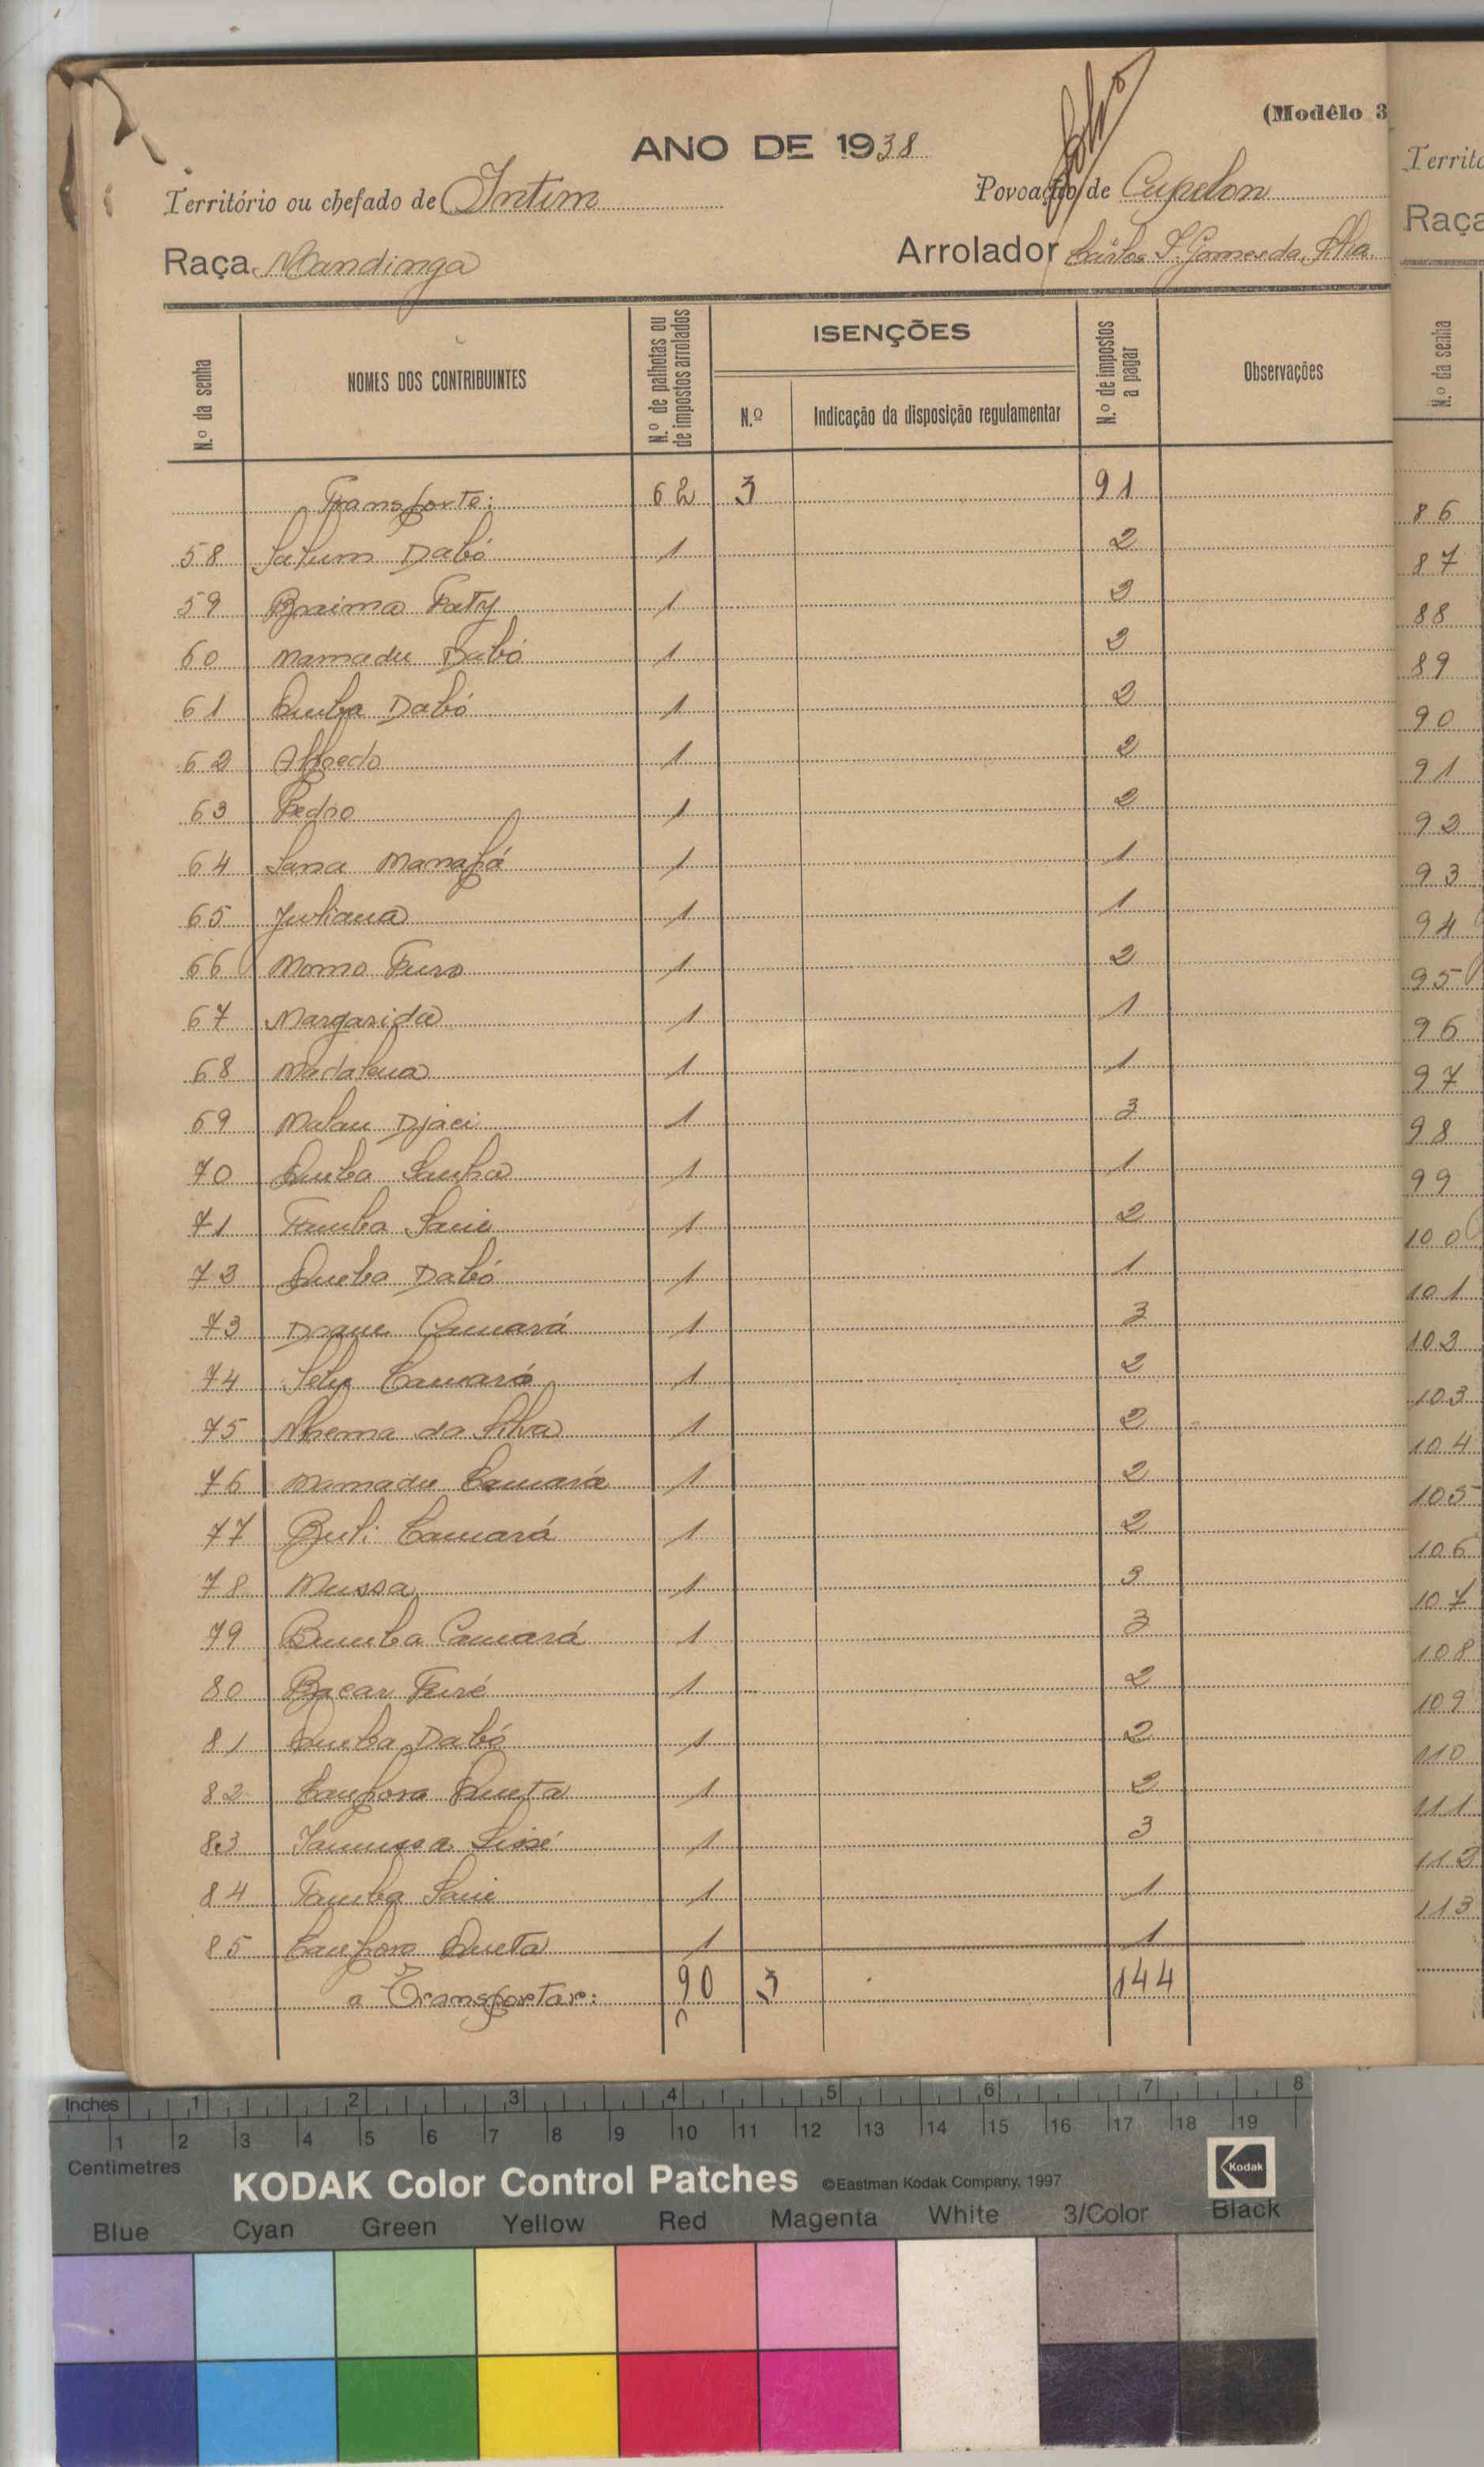 (Modêlo 3
ANO DE 1938
Território ou chefado de Intim
Povoação de Cupelon
Raça Mandinga
Arrolador Cárlos S. Gomes da Silva
N.º da senha
NOMES DOS CONTRIBUINTES
N.º de palhotas ou de impostos arrolados
ISENÇÕES
N.º
Indicação da disposição regulamentar
N.º de impostos a pagar
Observações
Transporte: 62 3 91
58 Dabó 1 2
59 Braima Faty 1 2
60 Mamadu Dabó 1 2
61 Queba Dabó 1 2
62 Alfredo 1 2
63 Pedro 1 2
64 Sana Manafá 1 1
65 Juliana 1 1
66 Momo Turo 1 2
67 Margarida 1 1
68 Madalena 1 1
69 Malau Djaci 1 3
70 Queba Sanha 1 1
71 Tamba Sanie 1 2
72 Queba Dabó 1 1
73 Camará 1 3
74 Camará 1 2
75 da Silva 1 2
76 Mamadu Camará 1 2
77 Buli Camará 1 2
78 Mussa 1 3
79 Bumba Camará 1 3
80 Bacar Turé 1 2
81 Queba Dabó 1 2
82 Queta 1 2
83 Sissé 1 3
84 Tamba Sanie 1 1
85 Queta 1 1
a Transportar: 90 3 144
Territó
Raça
N.º da senha
86
87
88
89
90
91
92
93
94
95
96
97
98
99
100
101
102
103
104
105
106
107
108
109
110
111
112
113
Inches 1 2 3 4 5 6 7 8
1 2 3 4 5 6 7 8 9 10 11 12 13 14 15 16 17 18 19
Centimetres
KODAK Color Control Patches ©Eastman Kodak Company, 1997 Kodak
Blue Cyan Green Yellow Red Magenta White 3/Color Black